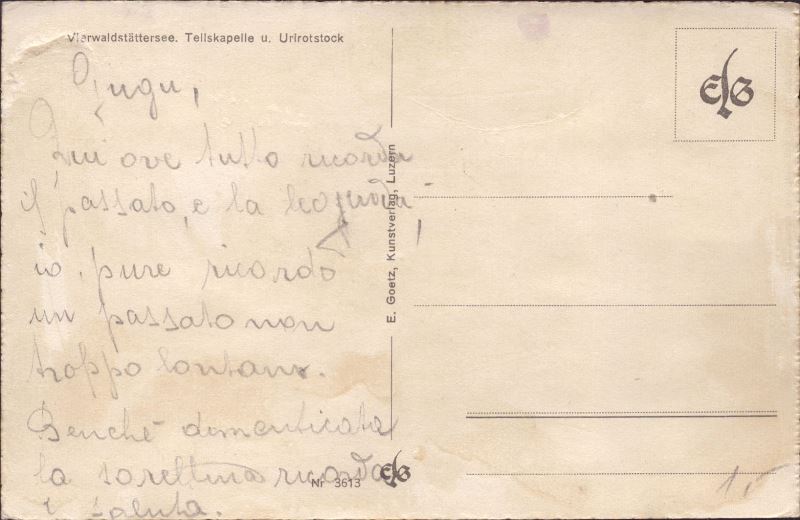 Vierwaldstättersee. Tellskapelle u. Urirotstock
Gugu,
Qui ove tutto ricorda
il passato, e la leggenda,
io, pure ricordo
un passato non
troppo lontano.
Benché dimenticata
la sorellina ricorda
e saluta.
E. Goetz, Kunstverlag, Luzern
EG
Nr 3613 EG